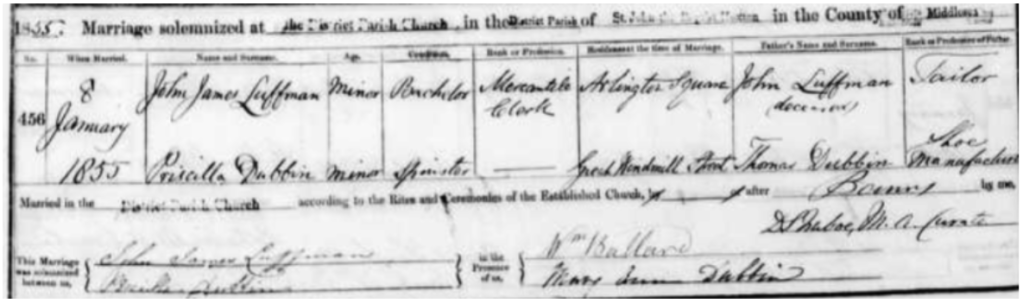 1855. Marriage solemnized at the District Parish Church in the District Parish of St John in the County of Middlesex
No. When Married. Name and Surname. Age. Condition. Rank or Profession. Residence at the time of Marriage. Father's Name and Surname. Rank or Profession of Father.
456 8 January 1855
John James Luffman Minor Bachelor Mercantile Clerk Arlington Square John Luffman (deceased) Tailor
Priscilla Dubbin Minor Spinster Great Windmill Street Thomas Dubbin Shoe Manufacturer
Married in the District Parish Church according to the Rites and Ceremonies of the Established Church, by after Banns by me,
M.A. Curate
This Marriage was solemnized between us, John James Luffman in the Presence of us, Wm Ballard
Priscilla Dubbin Mary Ann Dubbin